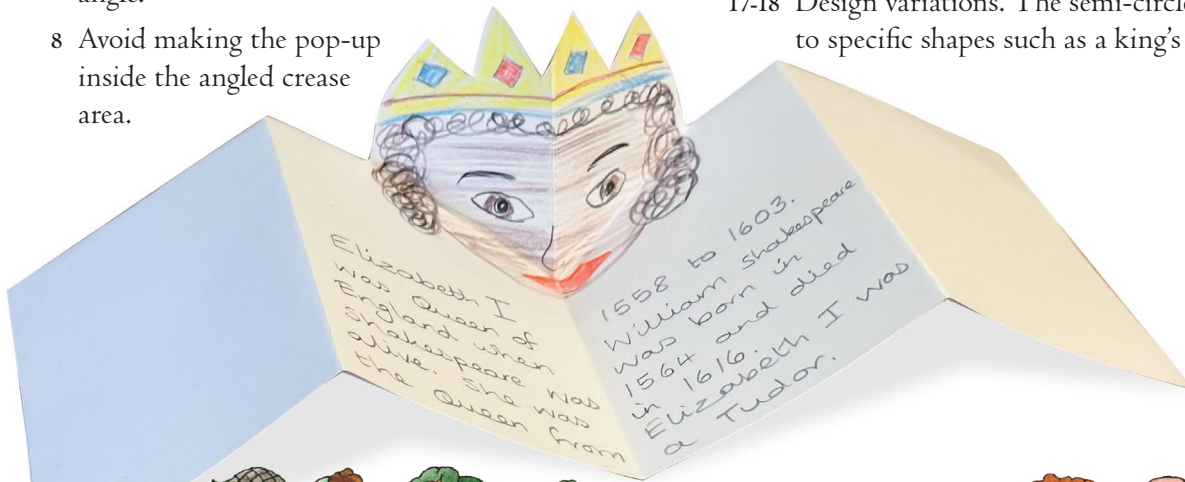 angle.
8 Avoid making the pop-up
inside the angled crease
area.
17-18 Design variations. The semi-circle
to specific shapes such as a king's
Elizabeth I
was Queen of
England when
Shakespeare was
alive. She was
the Queen from
1558 to 1603.
William Shakespeare
was born in
1564 and died
in 1616.
Elizabeth I was
a Tudor.